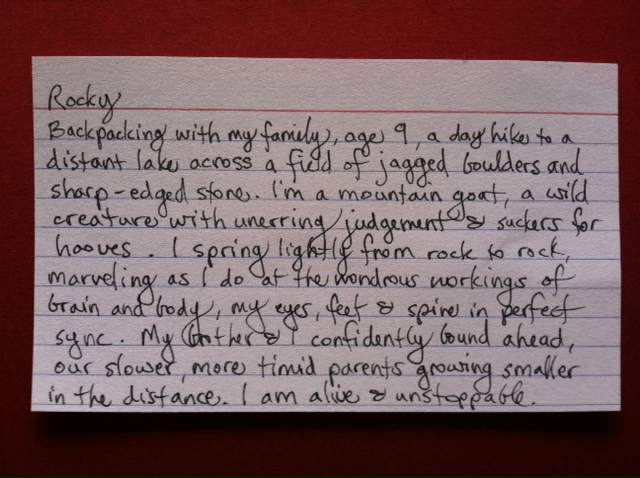 Rocky
Backpacking with my family, age 9, a day hike to a
distant lake across a field of jagged boulders and
sharp-edged stone. I'm a mountain goat, a wild
creature with unerring judgement & suckers for
hooves. I spring lightly from rock to rock,
marveling as I do at the wondrous workings of
brain and body, my eyes, feet & spine in perfect
sync. My brother & I confidently bound ahead,
our slower, more timid parents growing smaller
in the distance. I am alive & unstoppable.